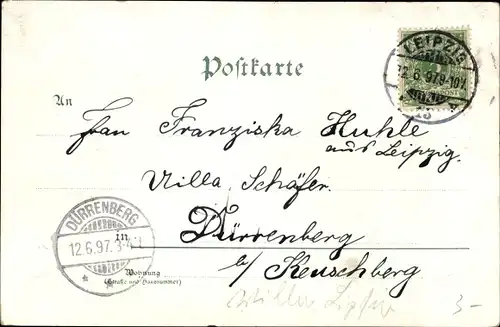 LEIPZIG
12.6.97.9-10V.
Postkarte
An
Frau Franziska Kuhle
aus Leipzig.
Villa Schäfer.
DÜRRENBERG
12.6.97.
in
Dürrenberg
b/ Keuschberg
Wohnung
(Straße und Hausnummer)
3-